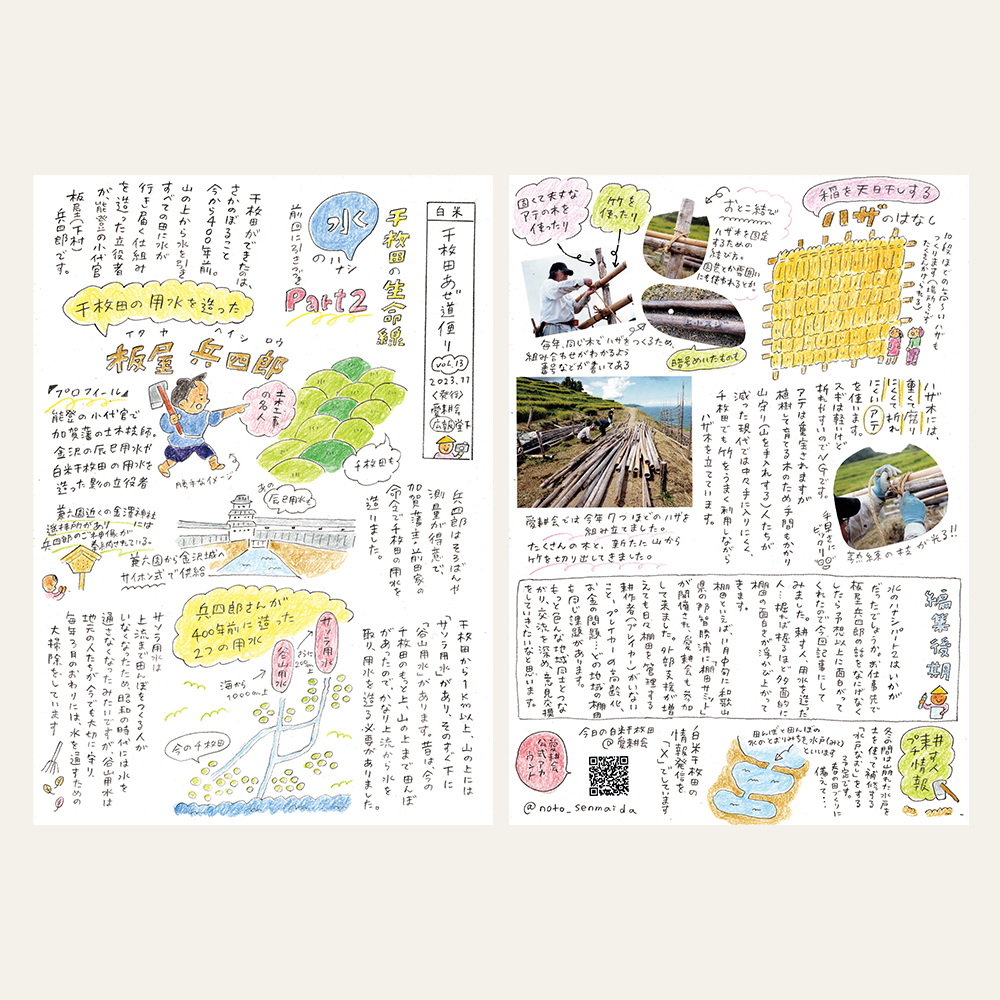 白米
千枚田あぜ道便り
vol.13
2023.11
〈発行〉
愛耕会
広報堂下
千枚田の生命線
水
のハナシ
前回に引きつづき
Part2
千枚田ができたのは、
さかのぼること
今から400年前。
山の上から水を引き
すべての田に水が
行き届く仕組み
を造った立役者
が、能登の小代官
板屋(下村)
兵四郎です。
千枚田の用水を造った
イタヤ ヘイシロウ
板屋 兵四郎
『プロフィール』
能登の小代官で
加賀藩の土木技師。
金沢の辰巳用水や
白米千枚田の用水を
造った影の立役者
勝手なイメージ
土木工事
の名人
千枚田も
あの
辰巳用水も
兵四郎はそろばんや
測量が得意で、
加賀藩主・前田家の
命令で千枚田の用水を
造りました。
兼六園近くの金澤神社
遥拝所があり
兵四郎のご神像が
奉納されている。
兼六園から金沢城への
サイホン式で供給
兵四郎さんが
400年前に造った
2つの用水
サソラ用水
谷山用水
さらに
200m
上
海から
1000m上
今の千枚田
千枚田から1km以上、山の上には
サソラ用水があり、そのすぐ下に
「谷山用水」があります。昔は、今の
千枚田のもっと上、山の上まで田んぼ
があったので、かなり上流から水を
取り、用水を造る必要がありました。
サソラ用水は
上流まで田んぼをつくる人が
いなくなったため、昭和の時代には水を
通さなくなったみたいですが谷山用水は
地元の人たちが今でも大切に守り、
毎年3月のおわりには、水を通すための
大掃除をしています
稲を天日干しする
ハザのはなし
10段ほどの高〜いハザも
つくります(場所とらず
たくさんかけられる)
おとこ結びで
ハザ木を固定
するための
結び方。
園芸とか雪囲い
にも使われるとか。
竹を
使ったり
固くて丈夫な
アテの木を
使ったり
毎年、同じ木でハザをつくるため、
組み合わせがわかるよう
番号などが書いてある
暗号めいたものも
ハザ木には、
重くて腐り
にくくて折れ
にくいアテ
を使います。
スギは軽いけど
折れやすいのでNGです。
アテは重宝されますが
植樹して育てる木のため、手間もかかり
山守り(山を手入れする)人たちが
減った現代では中々手に入りにくく、
千枚田でも竹をうまく利用しながら
ハザ木を立てています。
手早さに
ビックリ
熟練の技が光る!!
愛耕会では今年7つほどのハザを
組み立てました。
たくさんの木と、新たに山から
竹を切り出してきました。
編集後期
水のハナシパート2はいかが
だったでしょうか。お仕事先で
板屋兵四郎の話をなにげなく
したら予想以上に面白がって
くれたので今回記事にして
みました。耕す人、用水を造った
人…掘れば掘るほど多面的に
棚田の面白さが浮かび上がって
きます。
棚田といえば、11月中旬に和歌山
県の那智勝浦に「棚田サミット」
が開催され、愛耕会も参加
して来ました。外部支援が増
えても日々棚田を管理する
耕作者(プレイヤー)がいない
こと、プレイヤーの高齢化、
お金の問題…どの地域の棚田
も同じ課題があります。
もっと色んな地域同士とつな
がり、交流を深め、意見交換
をしていきたいなと思います。
耕す人
プチ情報
冬の間は崩れた水戸を
土を使って補修する
水戸なおしをする
予定です。
春の田づくりに
備えて・・・
田んぼと田んぼの
水のとおりみちを、水戸(みと)
といいます
白米千枚田の
情報発信を
「X」でしています
今日の白米千枚田
@愛耕会
愛耕会
公式アカ
ウント
@noto_senmaida